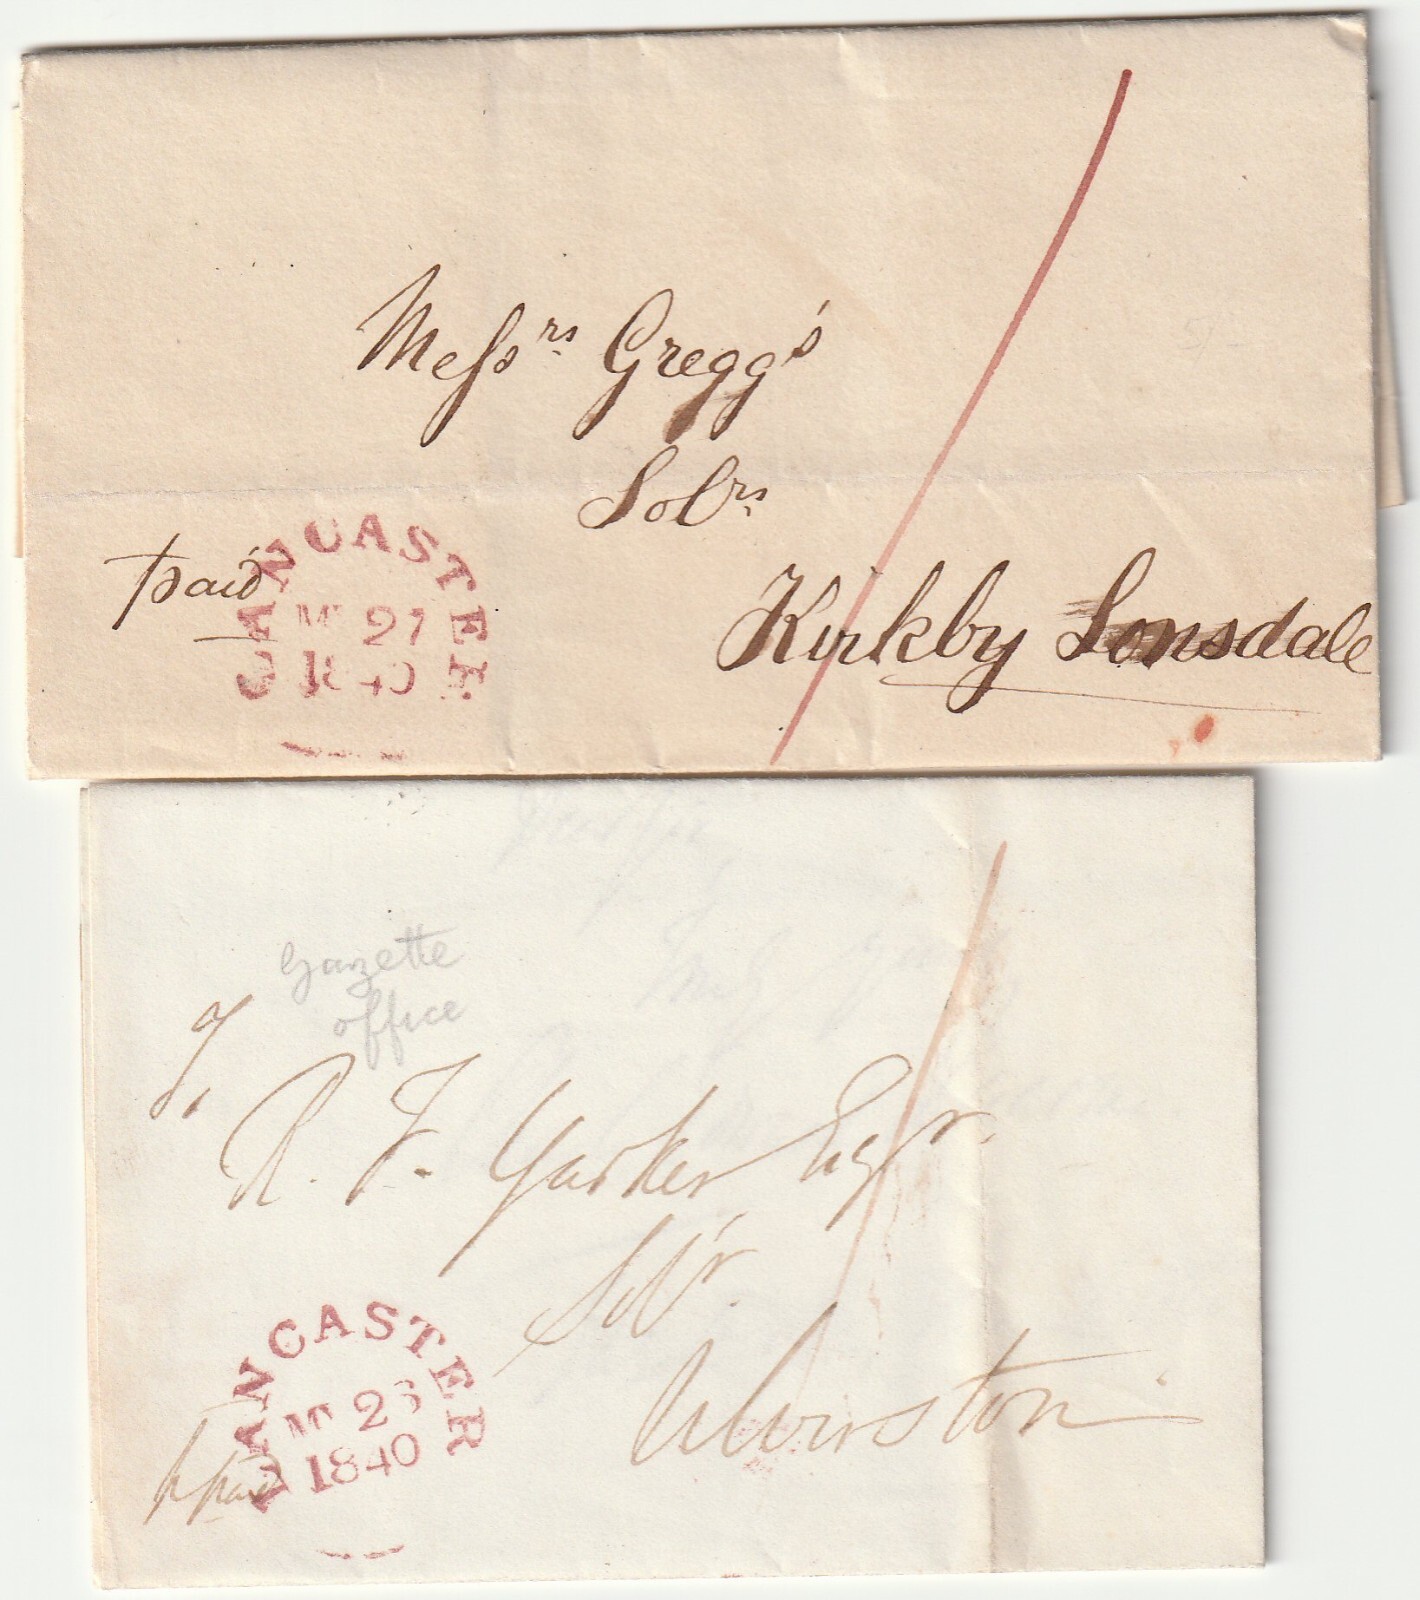 Messrs Gregg's
Solrs
Kirkby Lonsdale
paid
LANCASTER
27
1840
Gazette
office
To
R. F. Yarker Esqr.
Solr.
Ulverston
LANCASTER
1840